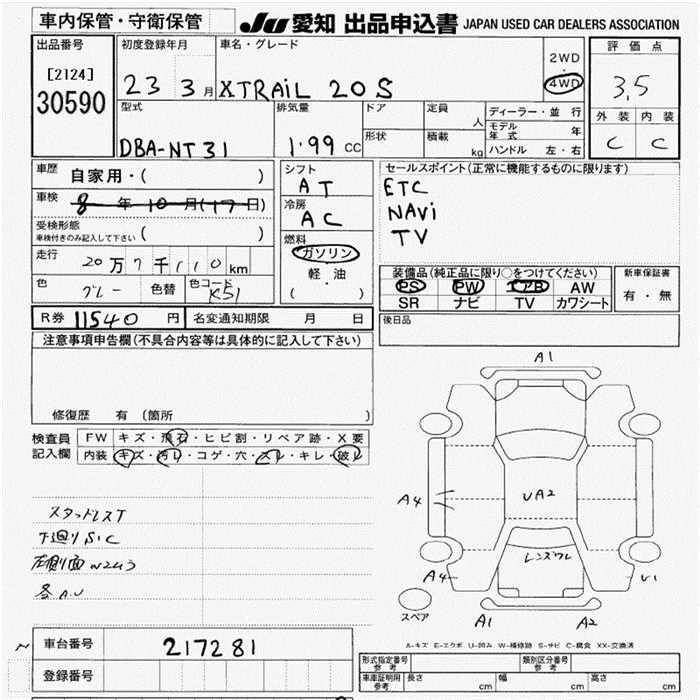 車内保管・守衛保管
JU 愛知 出品申込書 JAPAN USED CAR DEALERS ASSOCIATION
出品番号
[2124]
30590
初度登録年月
23 3月
車名・グレード
XTRAIL 20S
2WD
・
4WD
評価点
3.5
外装 内装
C C
型式
DBA-NT31
排気量
1.99 CC
ドア
定員
人
形状
積載
kg
ディーラー・並行
モデル年式 年
ハンドル 左・右
車歴
自家用・( )
車検
8年10月(17日)
受検形態
車検付きのみ記入して下さい ( )
走行
20万7千110km
色
グレー
色替
色コード
K51
シフト
AT
冷房
AC
燃料
ガソリン
軽・油
( )
セールスポイント(正常に機能するものに限ります)
ETC
NAVi
TV
装備品(純正品に限り○をつけてください)
PS PW エアB AW
SR ナビ TV カワシート
新車保証書
有・無
後日品
R券 11540 円
名変通知期限 月 日
注意事項申告欄(不具合内容等は具体的に記入して下さい)
修復歴 有 (箇所 )
検査員
記入欄
FW キズ・飛石・ヒビ割・リペア跡・X要
内装 キズ・汚レ・コゲ・穴・スレ・キレ・破レ
スタットレスT
下廻りS.C
左側面W2U3
各A.U
A1
A4
UA2
レンズワレ
A4
U1
スペア
A1
A2
A-キズ E-エクボ U-凹み W-補修跡 S-サビ C-腐食 XX-交換済
車台番号
217281
登録番号
形式指定番号
参考
類別区分番号
参考
車庫証明用
参考
長さ cm
幅 cm
高さ cm